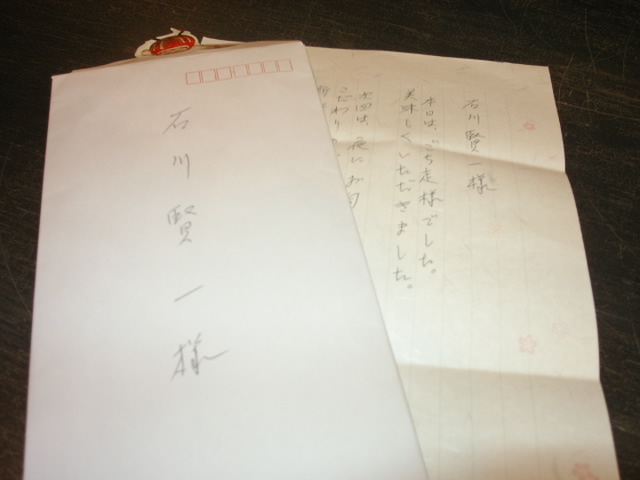 石川賢一様
石川賢一様
本日は、ごち走様でした。
美味しくいただきました。
次回は、夜にお
こだわり